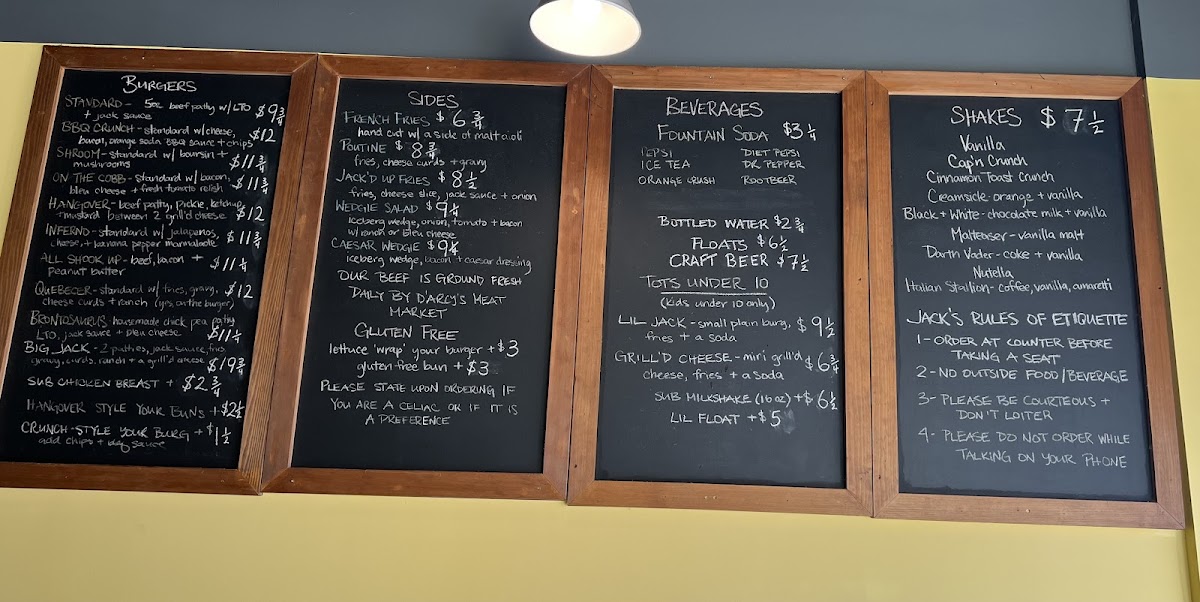 BURGERS
STANDARD - 5oz beef patty w/ LTO $9 3/4
+ jack sauce
BBQ CRUNCH - standard w/ cheese, $12
bacon, orange soda BBQ sauce + chips
SHROOM - standard w/ boursin + $11 3/4
mushrooms
ON THE COBB - standard w/ bacon, $11 3/4
bleu cheese + fresh tomato relish
HANGOVER - beef patty, pickle, ketchup $12
+ mustard between 2 grill'd cheese
INFERNO - standard w/ jalapenos, $11 3/4
cheese, + banana pepper marmalade
ALL SHOOK UP - beef, bacon + $11 1/4
peanut butter
QUEBECER - standard w/ fries, gravy, $12
cheese curds + ranch (yes, on the burger)
BRONTOSAURUS - housemade chick pea patty
LTO, jack sauce + bleu cheese $11 1/4
BIG JACK - 2 patties, jack sauce, fries
gravy, curds, ranch + a grill'd cheese $19 3/4
SUB CHICKEN BREAST + $2 3/4
HANGOVER STYLE YOUR BUNS + $2 1/2
CRUNCH-STYLE YOUR BURG + $1 1/2
add chips + bbq sauce
SIDES
FRENCH FRIES $6 3/4
hand cut w/ a side of malt aioli
POUTINE $8 3/4
fries, cheese curds + gravy
JACK'D UP FRIES $8 1/2
fries, cheese slice, jack sauce + onion
WEDGIE SALAD $9 1/4
iceberg wedge, onion, tomato + bacon
w/ ranch or bleu cheese
CAESAR WEDGIE $9 1/4
iceberg wedge, bacon + caesar dressing
OUR BEEF IS GROUND FRESH
DAILY BY D'ARCY'S MEAT
MARKET
GLUTEN FREE
lettuce 'wrap' your burger + $3
gluten free bun + $3
PLEASE STATE UPON ORDERING IF
YOU ARE A CELIAC OR IF IT IS
A PREFERENCE
BEVERAGES
FOUNTAIN SODA $3 1/4
PEPSI DIET PEPSI
ICE TEA DR. PEPPER
ORANGE CRUSH ROOTBEER
BOTTLED WATER $2 3/4
FLOATS $6 1/2
CRAFT BEER $7 1/2
TOTS UNDER 10
(kids under 10 only)
LIL JACK - small plain burg, $9 1/2
fries + a soda
GRILL'D CHEESE - mini grill'd $6 3/4
cheese, fries + a soda
SUB MILKSHAKE (16oz) + $6 1/2
LIL FLOAT + $5
SHAKES $7 1/2
Vanilla
Cap'n Crunch
Cinnamon Toast Crunch
Creamsicle - orange + vanilla
Black + White - chocolate milk + vanilla
Malteaser - vanilla malt
Darth Vader - coke + vanilla
Nutella
Italian Stallion - coffee, vanilla, amaretti
JACK'S RULES OF ETIQUETTE
1 - ORDER AT COUNTER BEFORE
TAKING A SEAT
2 - NO OUTSIDE FOOD / BEVERAGE
3 - PLEASE BE COURTEOUS +
DON'T LOITER
4 - PLEASE DO NOT ORDER WHILE
TALKING ON YOUR PHONE